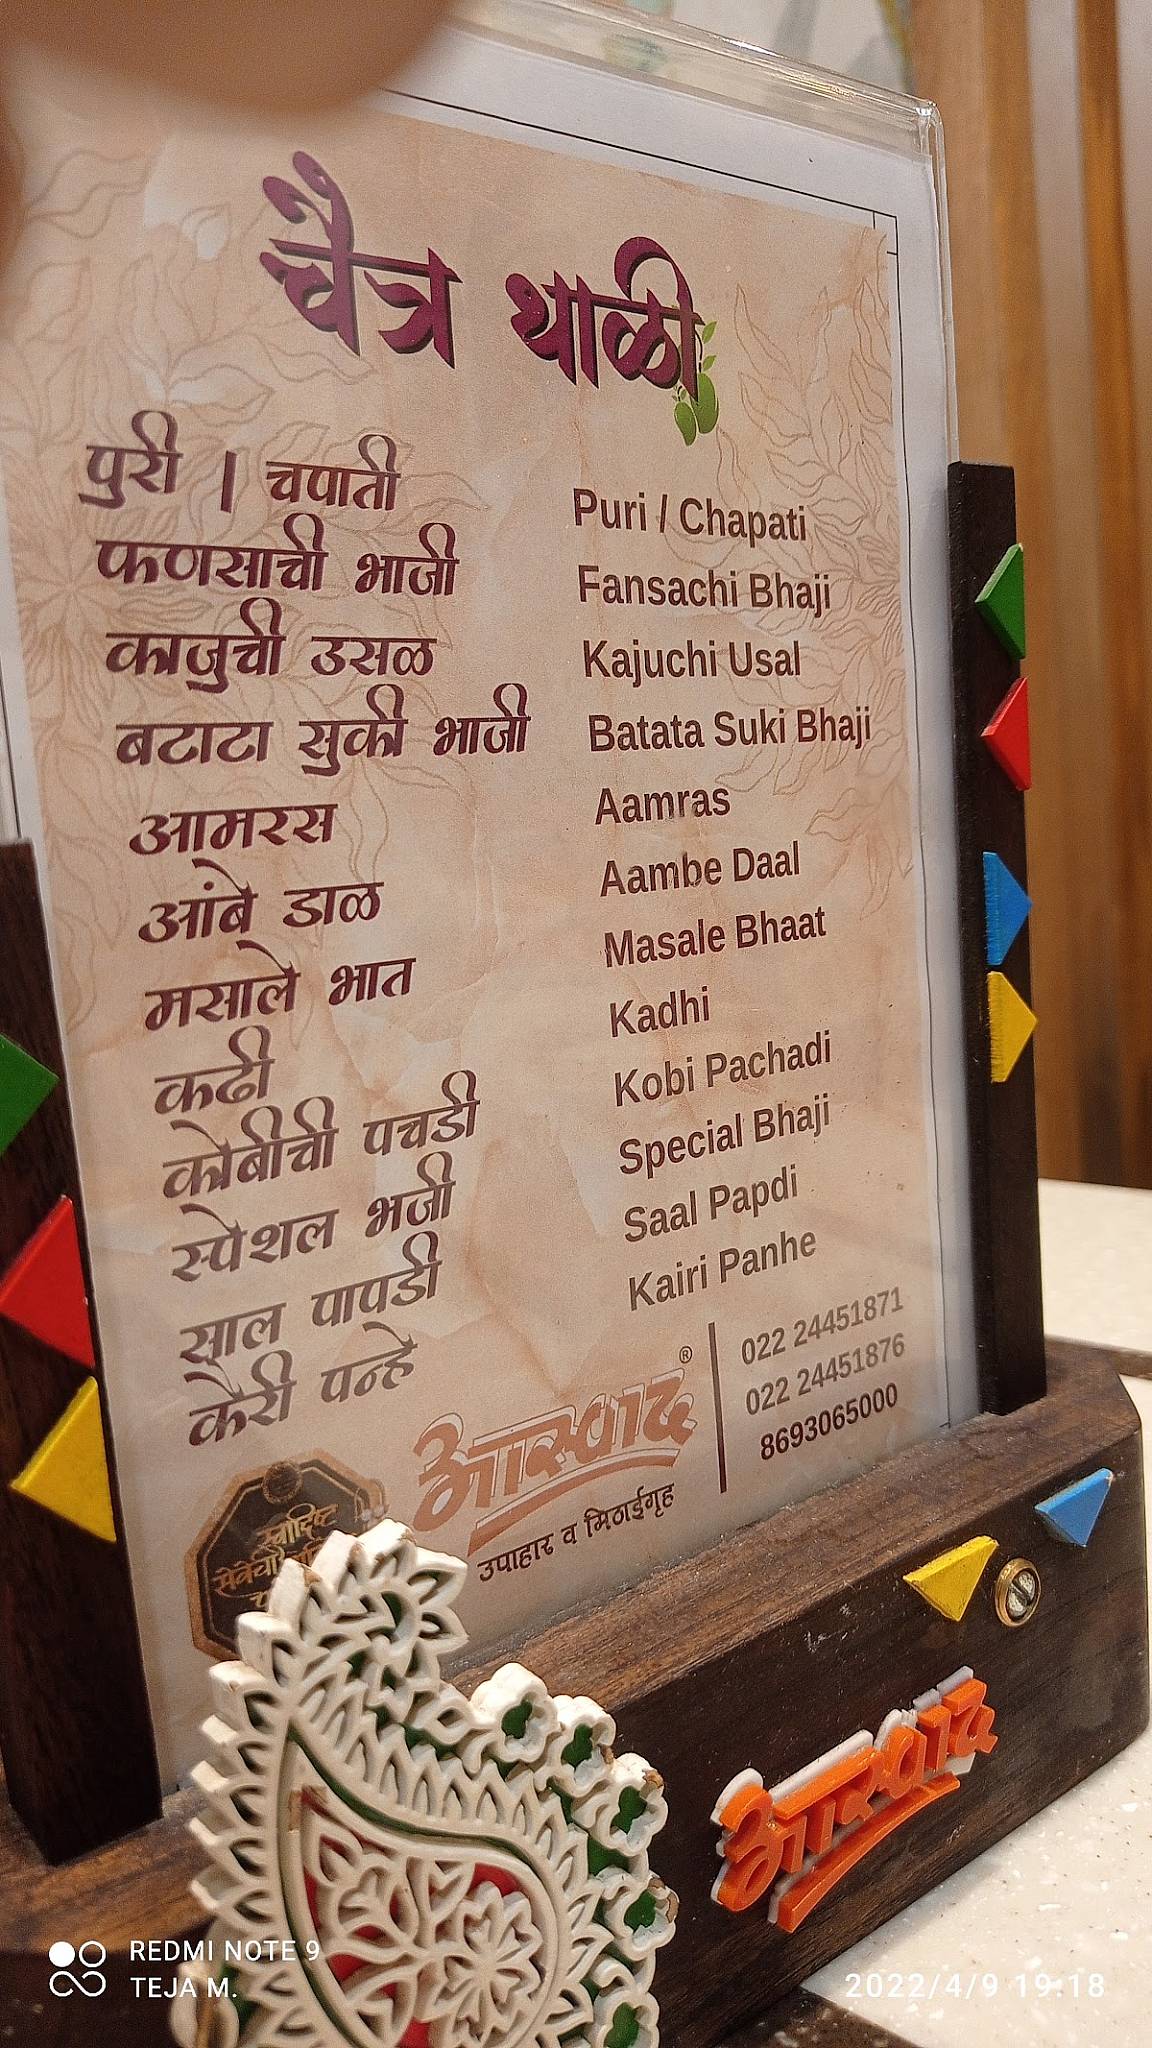 चैत्र थाळी
पुरी | चपाती
Puri / Chapati
फणसाची भाजी
Fansachi Bhaji
काजुची उसळ
Kajuchi Usal
बटाटा सुकी भाजी
Batata Suki Bhaji
आमरस
Aamras
आंबे डाळ
Aambe Daal
मसाले भात
Masale Bhaat
कढी
Kadhi
कोबीची पचडी
Kobi Pachadi
स्पेशल भजी
Special Bhaji
साल पापडी
Saal Papdi
कैरी पन्हे
Kairi Panhe
आस्वाद ®
उपाहार व मिठाईगृह
022 24451871
022 24451876
8693065000
स्वादिष्ट
सेवेची
आस्वाद
REDMI NOTE 9
TEJA M.
2022/4/9 19:18